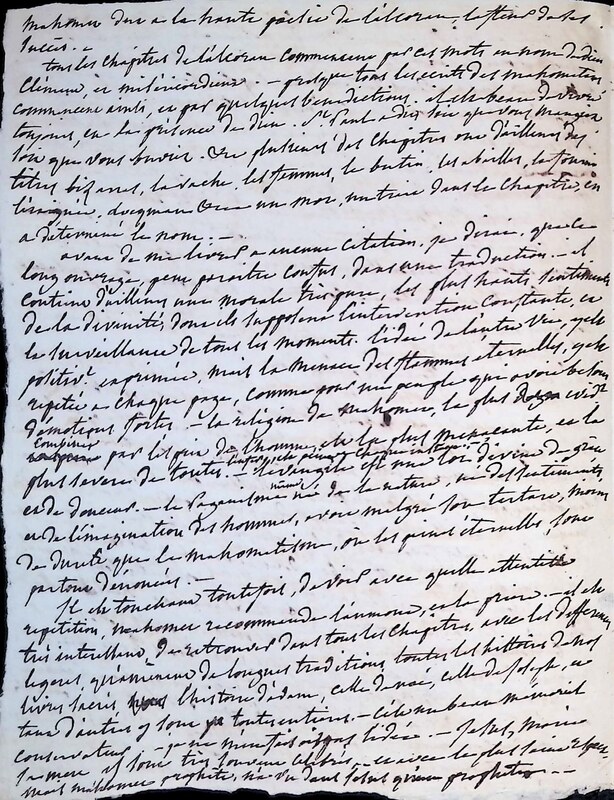 mahomet dut a la haute poësie de l'alcoran, le
succès. –
tous les chapitres de l'alcoran commencent par ces mots, au nom de dieu
clément, et miséricordieux. – presque tous les écrits des mahometans
commencent ainsi, et par quelques bénédictions. il est beau de vivre
toujours, en la présence de dieu. St Paul a dit soit que vous mangiez
soit que vous buviez. – plusieurs des chapitres ont d'ailleurs des
titres bizarres, la vache, les femmes, le butin, les abeilles, la fourmi
l'araignée, un mot, un trait dans le chapitre, en
a déterminé le nom. –
avant de me livrer a aucune citation, je dirai, que ce
long ouvrage, peut paroitre confus, dans une traduction. – il
contient d'ailleurs une morale très pure. les plus hauts sentiments
de la divinité, dont ils supposent l'intervention constante, et
la surveillance de tous les moments. l'idée de l'autre vie, y est
positivt exprimée, mais la menace des flammes éternelles, y est
repetée a chaque page, comme pour un peuple qui avoit besoin
d'émotions fortes – la religion de mahomet, la plus evidt
combinée par l'esprit de l'homme, est la plus menacante, et la
plus severe de toutes. – l'évangile est une loi divine de grace
et de douceur. – le paganisme même né de la nature, né des sentiments,
et de l'imagination des hommes, avoit malgré son tartare, moins
de dureté que le mahométisme, où les peines éternelles, sont
partout denoncées. –
Il est touchant toutefois, de voir avec quelle attentive
repetition, mahomet recommande l'aumone, et la priere. – il est
très interessant, de retrouver dans tous les chapitres, avec les differences
legeres, qu'amènent de longues traditions, toutes les histoires de nos
livres sacrés, l'histoire d'adam, celle de noé, celle de joseph, et
tant d'autres y sont toutes entieres. – c'est un beau mémorial
conservateur. – je ne m'en fais pas l'idée. – Jesus, marie
sa mere y sont très souvent celebrés, et avec le plus saint respect
mais mahomet prophète, n'a vu dans jesus qu'un prophète. –